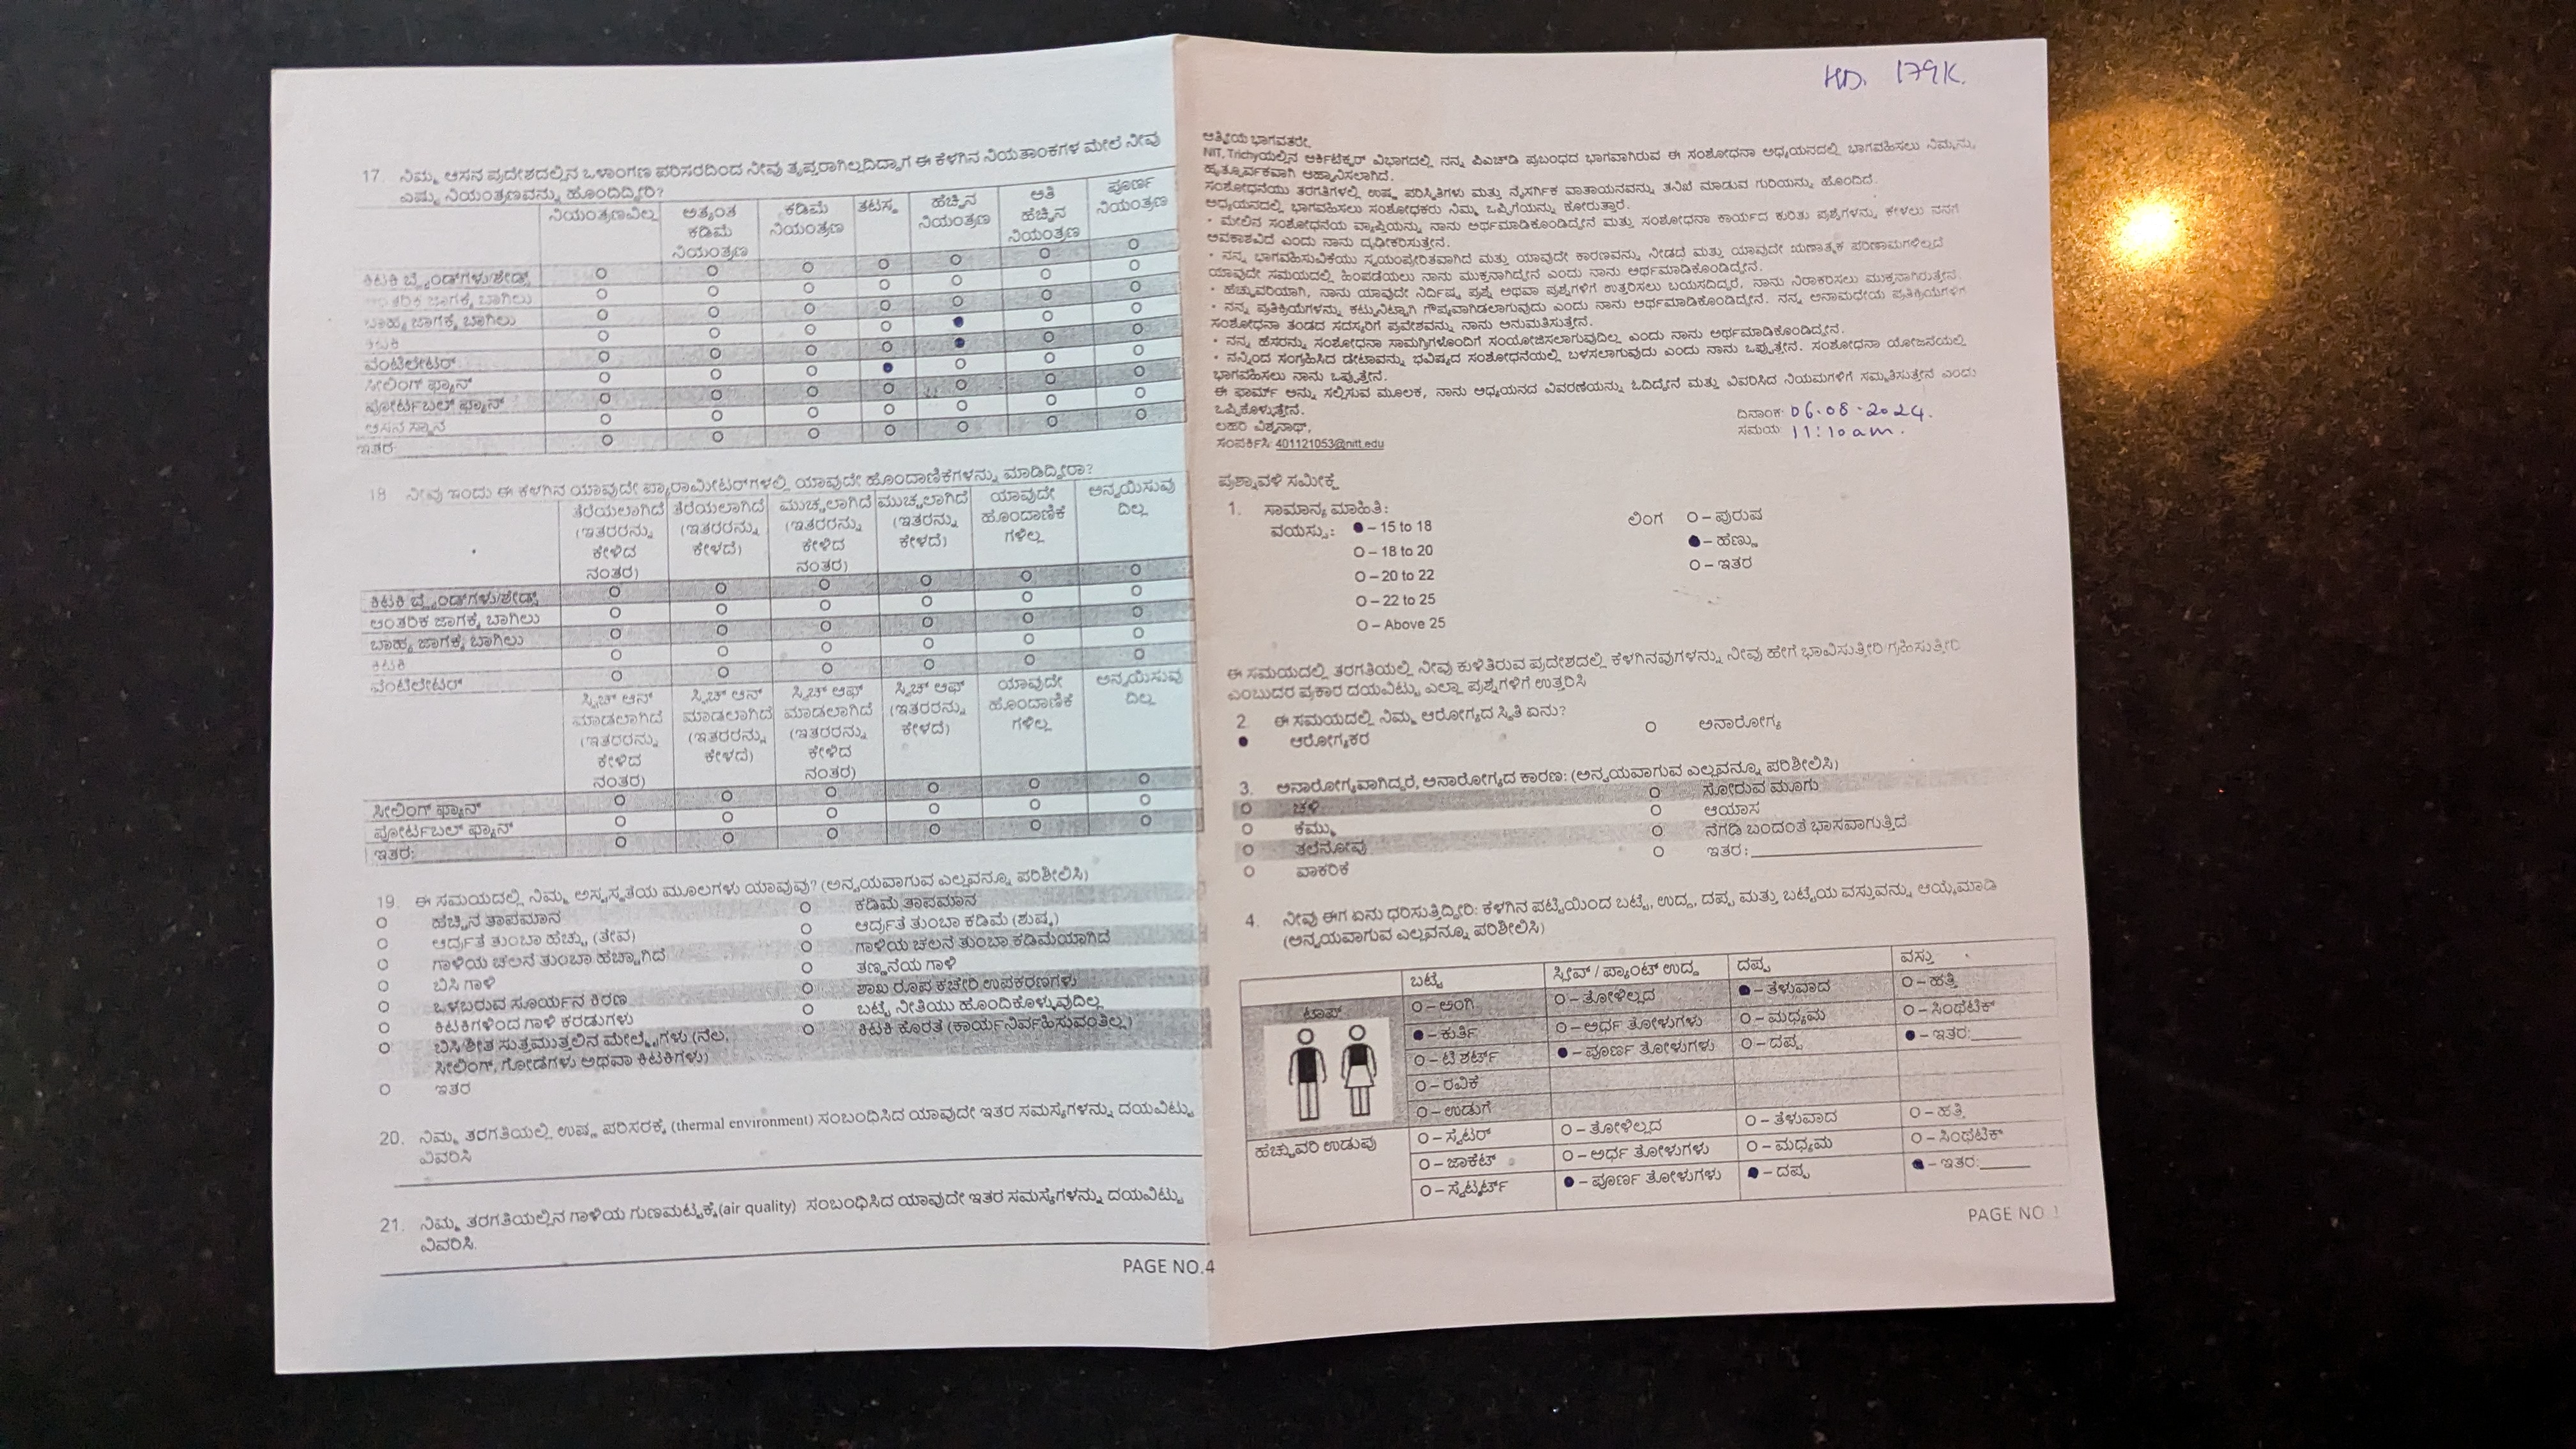 17. ನಿಮ್ಮ ಆಸನ ಪ್ರದೇಶದಲ್ಲಿನ ಒಳಾಂಗಣ ಪರಿಸರದಿಂದ ನೀವು ತೃಪ್ತರಾಗಿಲ್ಲದಿದ್ದಾಗ ಈ ಕೆಳಗಿನ ನಿಯತಾಂಕಗಳ ಮೇಲೆ ನೀವು
ಎಷ್ಟು ನಿಯಂತ್ರಣವನ್ನು ಹೊಂದಿದ್ದೀರಿ?
ನಿಯಂತ್ರಣವಿಲ್ಲ ಅತ್ಯಂತ ಕಡಿಮೆ ನಿಯಂತ್ರಣ ಕಡಿಮೆ ನಿಯಂತ್ರಣ ತಟಸ್ಥ ಹೆಚ್ಚಿನ ನಿಯಂತ್ರಣ ಅತಿ ಹೆಚ್ಚಿನ ನಿಯಂತ್ರಣ ಪೂರ್ಣ ನಿಯಂತ್ರಣ
ಕಿಟಕಿ ಬ್ಲೈಂಡ್‌ಗಳು/ಶೇಡ್ಸ್ O O O O O O O
ಆಂತರಿಕ ಜಾಗಕ್ಕೆ ಬಾಗಿಲು O O O O O O O
ಬಾಹ್ಯ ಜಾಗಕ್ಕೆ ಬಾಗಿಲು O O O O O O O
ಕಿಟಕಿ O O O O ● O O
ವೆಂಟಿಲೇಟರ್ O O O O ● O O
ಸೀಲಿಂಗ್ ಫ್ಯಾನ್ O O O ● O O O
ಪೋರ್ಟಬಲ್ ಫ್ಯಾನ್ O O O O O O O
ಆಸನ ಸ್ಥಾನ O O O O O O O
ಇತರ: O O O O O O O
18 ನೀವು ಇಂದು ಈ ಕೆಳಗಿನ ಯಾವುದೇ ಪ್ಯಾರಾಮೀಟರ್‌ಗಳಲ್ಲಿ ಯಾವುದೇ ಹೊಂದಾಣಿಕೆಗಳನ್ನು ಮಾಡಿದ್ದೀರಾ?
ತೆರೆಯಲಾಗಿದೆ (ಇತರರನ್ನು ಕೇಳಿದ ನಂತರ) ತೆರೆಯಲಾಗಿದೆ (ಇತರರನ್ನು ಕೇಳದೆ) ಮುಚ್ಚಲಾಗಿದೆ (ಇತರರನ್ನು ಕೇಳಿದ ನಂತರ) ಮುಚ್ಚಲಾಗಿದೆ (ಇತರನ್ನು ಕೇಳದೆ) ಯಾವುದೇ ಹೊಂದಾಣಿಕೆ ಗಳಿಲ್ಲ ಅನ್ವಯಿಸುವು ದಿಲ್ಲ
ಕಿಟಕಿ ಬ್ಲೈಂಡ್‌ಗಳು/ಶೇಡ್ಸ್ O O O O O O
ಆಂತರಿಕ ಜಾಗಕ್ಕೆ ಬಾಗಿಲು O O O O O O
ಬಾಹ್ಯ ಜಾಗಕ್ಕೆ ಬಾಗಿಲು O O O O O O
ಕಿಟಕಿ O O O O O O
ವೆಂಟಿಲೇಟರ್ O O O O O O
ಸ್ವಿಚ್ ಆನ್ ಮಾಡಲಾಗಿದೆ (ಇತರರನ್ನು ಕೇಳಿದ ನಂತರ) ಸ್ವಿಚ್ ಆನ್ ಮಾಡಲಾಗಿದೆ (ಇತರರನ್ನು ಕೇಳದೆ) ಸ್ವಿಚ್ ಆಫ್ ಮಾಡಲಾಗಿದೆ (ಇತರರನ್ನು ಕೇಳಿದ ನಂತರ) ಸ್ವಿಚ್ ಆಫ್ (ಇತರರನ್ನು ಕೇಳದೆ) ಯಾವುದೇ ಹೊಂದಾಣಿಕೆ ಗಳಿಲ್ಲ ಅನ್ವಯಿಸುವು ದಿಲ್ಲ
ಸೀಲಿಂಗ್ ಫ್ಯಾನ್ O O O O O O
ಪೋರ್ಟಬಲ್ ಫ್ಯಾನ್ O O O O O O
ಇತರ: O O O O O O
19. ಈ ಸಮಯದಲ್ಲಿ ನಿಮ್ಮ ಅಸ್ವಸ್ಥತೆಯ ಮೂಲಗಳು ಯಾವುವು? (ಅನ್ವಯವಾಗುವ ಎಲ್ಲವನ್ನೂ ಪರಿಶೀಲಿಸಿ)
O ಹೆಚ್ಚಿನ ತಾಪಮಾನ O ಕಡಿಮೆ ತಾಪಮಾನ
O ಆರ್ದ್ರತೆ ತುಂಬಾ ಹೆಚ್ಚು (ತೇವ) O ಆರ್ದ್ರತೆ ತುಂಬಾ ಕಡಿಮೆ (ಶುಷ್ಕ)
O ಗಾಳಿಯ ಚಲನೆ ತುಂಬಾ ಹೆಚ್ಚಾಗಿದೆ O ಗಾಳಿಯ ಚಲನೆ ತುಂಬಾ ಕಡಿಮೆಯಾಗಿದೆ
O ಬಿಸಿ ಗಾಳಿ O ತಣ್ಣನೆಯ ಗಾಳಿ
O ಒಳಬರುವ ಸೂರ್ಯನ ಕಿರಣ O ಶಾಖ ರೂಪ ಕಚೇರಿ ಉಪಕರಣಗಳು
O ಕಿಟಕಿಗಳಿಂದ ಗಾಳಿ ಕರಡುಗಳು O ಬಟ್ಟೆ ನೀತಿಯು ಹೊಂದಿಕೊಳ್ಳುವುದಿಲ್ಲ
O ಬಿಸಿ/ಶೀತ ಸುತ್ತಮುತ್ತಲಿನ ಮೇಲ್ಮೈಗಳು (ನೆಲ, O ಕಿಟಕಿ ಕೊರತೆ (ಕಾರ್ಯನಿರ್ವಹಿಸುವಂತಿಲ್ಲ)
ಸೀಲಿಂಗ್, ಗೋಡೆಗಳು ಅಥವಾ ಕಿಟಕಿಗಳು)
O ಇತರ
20. ನಿಮ್ಮ ತರಗತಿಯಲ್ಲಿ ಉಷ್ಣ ಪರಿಸರಕ್ಕೆ (thermal environment) ಸಂಬಂಧಿಸಿದ ಯಾವುದೇ ಇತರ ಸಮಸ್ಯೆಗಳನ್ನು ದಯವಿಟ್ಟು
ವಿವರಿಸಿ
21. ನಿಮ್ಮ ತರಗತಿಯಲ್ಲಿನ ಗಾಳಿಯ ಗುಣಮಟ್ಟಕ್ಕೆ(air quality) ಸಂಬಂಧಿಸಿದ ಯಾವುದೇ ಇತರ ಸಮಸ್ಯೆಗಳನ್ನು ದಯವಿಟ್ಟು
ವಿವರಿಸಿ.
PAGE NO.4
HD. 179K.
ಆತ್ಮೀಯ ಭಾಗವತರೇ,
NIT, Trichyಯಲ್ಲಿನ ಆರ್ಕಿಟೆಕ್ಚರ್ ವಿಭಾಗದಲ್ಲಿ ನನ್ನ ಪಿಎಚ್‌ಡಿ ಪ್ರಬಂಧದ ಭಾಗವಾಗಿರುವ ಈ ಸಂಶೋಧನಾ ಅಧ್ಯಯನದಲ್ಲಿ ಭಾಗವಹಿಸಲು ನಿಮ್ಮನ್ನು
ಹೃತ್ಪೂರ್ವಕವಾಗಿ ಆಹ್ವಾನಿಸಲಾಗಿದೆ.
ಸಂಶೋಧನೆಯು ತರಗತಿಗಳಲ್ಲಿ ಉಷ್ಣ ಪರಿಸ್ಥಿತಿಗಳು ಮತ್ತು ನೈಸರ್ಗಿಕ ವಾತಾಯನವನ್ನು ತನಿಖೆ ಮಾಡುವ ಗುರಿಯನ್ನು ಹೊಂದಿದೆ.
ಅಧ್ಯಯನದಲ್ಲಿ ಭಾಗವಹಿಸಲು ಸಂಶೋಧಕರು ನಿಮ್ಮ ಒಪ್ಪಿಗೆಯನ್ನು ಕೋರುತ್ತಾರೆ.
• ಮೇಲಿನ ಸಂಶೋಧನೆಯ ವ್ಯಾಪ್ತಿಯನ್ನು ನಾನು ಅರ್ಥಮಾಡಿಕೊಂಡಿದ್ದೇನೆ ಮತ್ತು ಸಂಶೋಧನಾ ಕಾರ್ಯದ ಕುರಿತು ಪ್ರಶ್ನೆಗಳನ್ನು ಕೇಳಲು ನನಗೆ
ಅವಕಾಶವಿದೆ ಎಂದು ನಾನು ದೃಢೀಕರಿಸುತ್ತೇನೆ.
• ನನ್ನ ಭಾಗವಹಿಸುವಿಕೆಯು ಸ್ವಯಂಪ್ರೇರಿತವಾಗಿದೆ ಮತ್ತು ಯಾವುದೇ ಕಾರಣವನ್ನು ನೀಡದೆ ಮತ್ತು ಯಾವುದೇ ಋಣಾತ್ಮಕ ಪರಿಣಾಮಗಳಿಲ್ಲದೆ
ಯಾವುದೇ ಸಮಯದಲ್ಲಿ ಹಿಂಪಡೆಯಲು ನಾನು ಮುಕ್ತನಾಗಿದ್ದೇನೆ ಎಂದು ನಾನು ಅರ್ಥಮಾಡಿಕೊಂಡಿದ್ದೇನೆ.
• ಹೆಚ್ಚುವರಿಯಾಗಿ, ನಾನು ಯಾವುದೇ ನಿರ್ದಿಷ್ಟ ಪ್ರಶ್ನೆ ಅಥವಾ ಪ್ರಶ್ನೆಗಳಿಗೆ ಉತ್ತರಿಸಲು ಬಯಸದಿದ್ದರೆ, ನಾನು ನಿರಾಕರಿಸಲು ಮುಕ್ತನಾಗಿರುತ್ತೇನೆ.
• ನನ್ನ ಪ್ರತಿಕ್ರಿಯೆಗಳನ್ನು ಕಟ್ಟುನಿಟ್ಟಾಗಿ ಗೌಪ್ಯವಾಗಿಡಲಾಗುವುದು ಎಂದು ನಾನು ಅರ್ಥಮಾಡಿಕೊಂಡಿದ್ದೇನೆ. ನನ್ನ ಅನಾಮಧೇಯ ಪ್ರತಿಕ್ರಿಯೆಗಳಿಗೆ
ಸಂಶೋಧನಾ ತಂಡದ ಸದಸ್ಯರಿಗೆ ಪ್ರವೇಶವನ್ನು ನಾನು ಅನುಮತಿಸುತ್ತೇನೆ.
• ನನ್ನ ಹೆಸರನ್ನು ಸಂಶೋಧನಾ ಸಾಮಗ್ರಿಗಳೊಂದಿಗೆ ಸಂಯೋಜಿಸಲಾಗುವುದಿಲ್ಲ ಎಂದು ನಾನು ಅರ್ಥಮಾಡಿಕೊಂಡಿದ್ದೇನೆ.
• ನನ್ನಿಂದ ಸಂಗ್ರಹಿಸಿದ ಡೇಟಾವನ್ನು ಭವಿಷ್ಯದ ಸಂಶೋಧನೆಯಲ್ಲಿ ಬಳಸಲಾಗುವುದು ಎಂದು ನಾನು ಒಪ್ಪುತ್ತೇನೆ. ಸಂಶೋಧನಾ ಯೋಜನೆಯಲ್ಲಿ
ಭಾಗವಹಿಸಲು ನಾನು ಒಪ್ಪುತ್ತೇನೆ.
ಈ ಫಾರ್ಮ್ ಅನ್ನು ಸಲ್ಲಿಸುವ ಮೂಲಕ, ನಾನು ಅಧ್ಯಯನದ ವಿವರಣೆಯನ್ನು ಓದಿದ್ದೇನೆ ಮತ್ತು ವಿವರಿಸಿದ ನಿಯಮಗಳಿಗೆ ಸಮ್ಮತಿಸುತ್ತೇನೆ ಎಂದು
ಒಪ್ಪಿಕೊಳ್ಳುತ್ತೇನೆ.
ಲಹರಿ ವಿಶ್ವನಾಥ್,
ಸಂಪರ್ಕಿಸಿ: 401121053@nitt.edu
ದಿನಾಂಕ: 06.08.2024.
ಸಮಯ: 11:10am.
ಪ್ರಶ್ನಾವಳಿ ಸಮೀಕ್ಷೆ
1. ಸಾಮಾನ್ಯ ಮಾಹಿತಿ:
ವಯಸ್ಸು: ● – 15 to 18 ಲಿಂಗ O – ಪುರುಷ
O – 18 to 20 ● – ಹೆಣ್ಣು
O – 20 to 22 O – ಇತರ
O – 22 to 25
O – Above 25
ಈ ಸಮಯದಲ್ಲಿ ತರಗತಿಯಲ್ಲಿ ನೀವು ಕುಳಿತಿರುವ ಪ್ರದೇಶದಲ್ಲಿ ಕೆಳಗಿನವುಗಳನ್ನು ನೀವು ಹೇಗೆ ಭಾವಿಸುತ್ತೀರಿ/ಗ್ರಹಿಸುತ್ತೀರಿ
ಎಂಬುದರ ಪ್ರಕಾರ ದಯವಿಟ್ಟು ಎಲ್ಲಾ ಪ್ರಶ್ನೆಗಳಿಗೆ ಉತ್ತರಿಸಿ
2. ಈ ಸಮಯದಲ್ಲಿ ನಿಮ್ಮ ಆರೋಗ್ಯದ ಸ್ಥಿತಿ ಏನು?
● ಆರೋಗ್ಯಕರ O ಅನಾರೋಗ್ಯ
3. ಅನಾರೋಗ್ಯವಾಗಿದ್ದರೆ, ಅನಾರೋಗ್ಯದ ಕಾರಣ: (ಅನ್ವಯವಾಗುವ ಎಲ್ಲವನ್ನೂ ಪರಿಶೀಲಿಸಿ)
O ಚಳಿ O ಸೋರುವ ಮೂಗು
O ಕೆಮ್ಮು O ಆಯಾಸ
O ತಲೆನೋವು O ನೆಗಡಿ ಬಂದಂತೆ ಭಾಸವಾಗುತ್ತಿದೆ
O ವಾಕರಿಕೆ O ಇತರ:
4. ನೀವು ಈಗ ಏನು ಧರಿಸುತ್ತಿದ್ದೀರಿ: ಕೆಳಗಿನ ಪಟ್ಟಿಯಿಂದ ಬಟ್ಟೆ, ಉದ್ದ, ದಪ್ಪ ಮತ್ತು ಬಟ್ಟೆಯ ವಸ್ತುವನ್ನು ಆಯ್ಕೆಮಾಡಿ
(ಅನ್ವಯವಾಗುವ ಎಲ್ಲವನ್ನೂ ಪರಿಶೀಲಿಸಿ)
ಬಟ್ಟೆ ಸ್ಲೀವ್ / ಪ್ಯಾಂಟ್ ಉದ್ದ ದಪ್ಪ ವಸ್ತು
ಟಾಪ್ O – ಅಂಗಿ O – ತೋಳಿಲ್ಲದ ● – ತೆಳುವಾದ O – ಹತ್ತಿ
● – ಕುರ್ತಿ O – ಅರ್ಧ ತೋಳುಗಳು O – ಮಧ್ಯಮ O – ಸಿಂಥೆಟಿಕ್
O – ಟಿ ಶರ್ಟ್ ● – ಪೂರ್ಣ ತೋಳುಗಳು O – ದಪ್ಪ ● – ಇತರ:
O – ರವಿಕೆ
O – ಉಡುಗೆ
ಹೆಚ್ಚುವರಿ ಉಡುಪು O – ಸ್ವೆಟರ್ O – ತೋಳಿಲ್ಲದ O – ತೆಳುವಾದ O – ಹತ್ತಿ
O – ಜಾಕೆಟ್ O – ಅರ್ಧ ತೋಳುಗಳು O – ಮಧ್ಯಮ O – ಸಿಂಥೆಟಿಕ್
O – ಸ್ವೆಟ್ಶರ್ಟ್ ● – ಪೂರ್ಣ ತೋಳುಗಳು ● – ದಪ್ಪ ● – ಇತರ:
PAGE NO 1